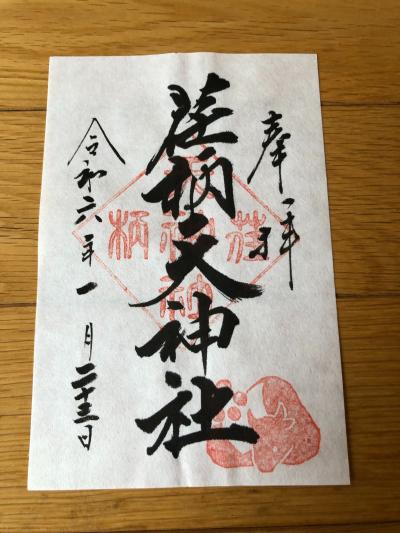 奉拝
荏柄天神社
令和六年一月二十三日